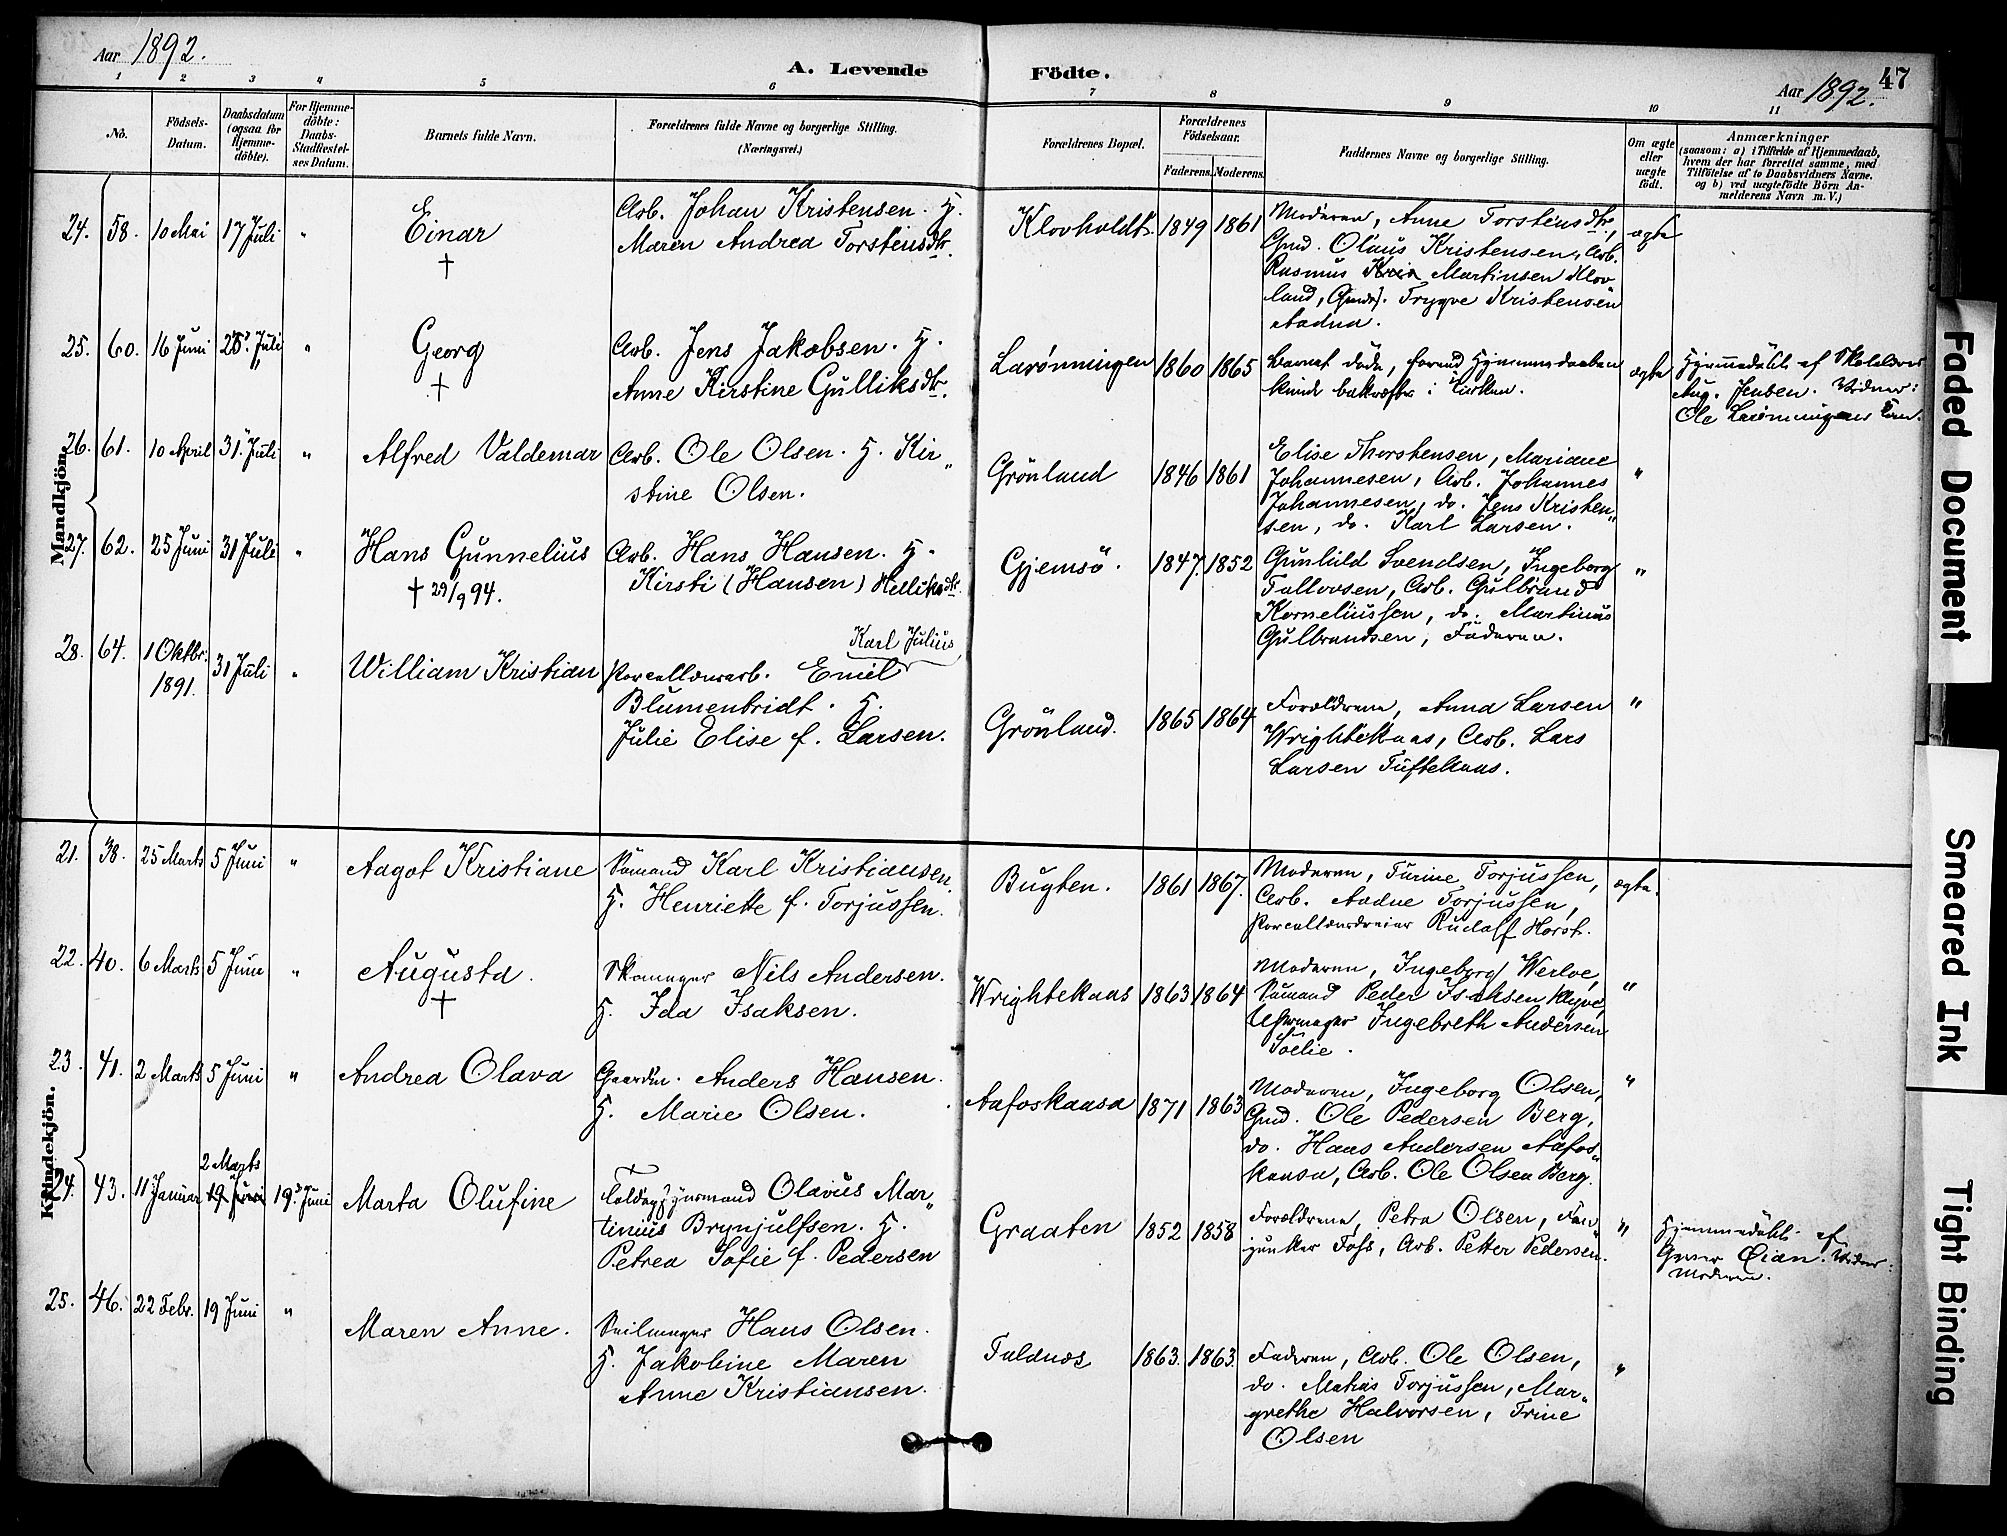 Aar 1892.
A. Levende Födte.
Aar 1892. 47
1 2 3 4 5 6 7 8 9 10 11
No.
Födsels-Datum.
Daabsdatum (ogsaa for Hjemme-döbte).
For Hjemme-döbte: Daabs-Stadfæstel-ses Datum.
Barnets fulde Navn.
Forældrenes fulde Navne og borgerlige Stilling.
(Næringsvei.)
Forældrenes Bopæl.
Forældrenes Födselsaar.
Faderens. Moderens.
Faddernes Navne og borgerlige Stilling.
Om ægte eller uægte födt.
Anmærkninger
(saasom: a) i Tilfælde af Hjemmedaab,
hvem der har forrettet samme, med
Tilföielse af to Daabsvidners Navne.
og b) ved uægtefödte Börn An-
melderens Navn m. V.)
Mandkjön.
24. 58. 10 Mai 17 Juli " Einar †
Arb. Johan Kristensen. H.
Maren Andrea Torstensdtr.
Klovholdt. 1849 1861
Moderen, Anne Torstensdtr,
Gmd. Olaus Kristensen, Arb.
Rasmus Martinsen Klov-
land, Gmds. Trygve Kristensen
Aadna.
ægte
25. 60. 16 Juni Juli " Georg †
Arb. Jens Jakobsen. H.
Anne Kirstine Gulliksdtr.
Larönningen 1860 1865
Barnet döde, forend Hjemmedaaben
kunde bekræftes i Kirken.
ægte
Hjemmedöbt af Skolelærer
Aug. Jensen. Vidner:
Ole Larönningens
26. 61. 10 April 31 Juli " Alfred Valdemar
Arb. Ole Olsen. H. Kir-
stine Olsen.
Grönland 1846 1861
Elise Thorstensen, Mariane
Johannesen, Arb. Johannes
Johannesen, do. Jens Kristen-
sen, do. Karl Larsen.
"
27. 62. 25 Juni 31 Juli " Hans Gunnelius
† 29/9 94.
Arb. Hans Hansen. H.
Kirsti (Hansen) Helliksdtr.
Gjemsö. 1847. 1852
Gunhild Svendsen, Ingeborg
Tallovsen, Arb. Gulbrand
Korneliussen, do. Martinus
Gulbrandsen, Faderen.
"
28. 64. 1 Oktbr. 1891. 31 Juli " William Kristian
Karl Julius
Porcellænsarb. Emil
Blumentridt. H.
Julie Elise f. Larsen.
Grönland. 1865 1864
Forældrene, Anna Larsen
Wrightekaas, Arb. Lars
Larsen Tuftekaas.
"
Kvindekjön.
21. 38. 25 Marts 5 Juni " Aagot Kristiane
Sömand Karl Kristiansen.
H. Henriette f. Torjussen.
Bugten. 1861 1867.
Moderen, Turine Torjussen,
Arb. Aadne Torjussen,
Porcellænsdreier Rudolf Horst.
ægte.
22. 40. 6 Marts 5 Juni " Augusta. †
Skomager Nils Andersen.
H. Ida Isaksen.
Wrightekaas 1863 1864
Moderen, Ingeborg Werloe,
Sömand Peder Isaksen Klyve,
Uhrmager Ingebreth Andersen
Foelie.
"
23. 41. 2 Marts 5 Juni " Andrea Olava
Gaardm. Anders Hansen.
H. Marie Olsen.
Aafoskaasa 1871 1863
Moderen, Ingeborg Olsen,
Gmd. Ole Pedersen Berg,
do. Hans Andersen Aafos-
kaasa, Arb. Ole Olsen Berg.
"
24. 43. 11 Januar 2 Marts 19 Juni 19. Juni Marta Olufine
Toldopsynsmand Olavus Mar-
tinius Brynjulfsen. H.
Petrea Sofie f. Pedersen
Graaten 1852 1858
Forældrene, Petra Olsen, Fan-
junker Foss, Arb. Petter Pedersen.
"
Hjemmedöbt. af
Gjian. Vidner:
Moderen.
25. 46. 22 Febr. 19 Juni " Maren Anne.
Seilmager Hans Olsen.
H. Jakobine Maren
Anne Kristiansen.
Toldnæs 1863. 1863.
Faderen, Arb. Ole Olsen,
do. Matias Torjussen, Mar-
grethe Halvorsen, Trine
Olsen
"
Faded Document
Smeared Ink
Tight Binding